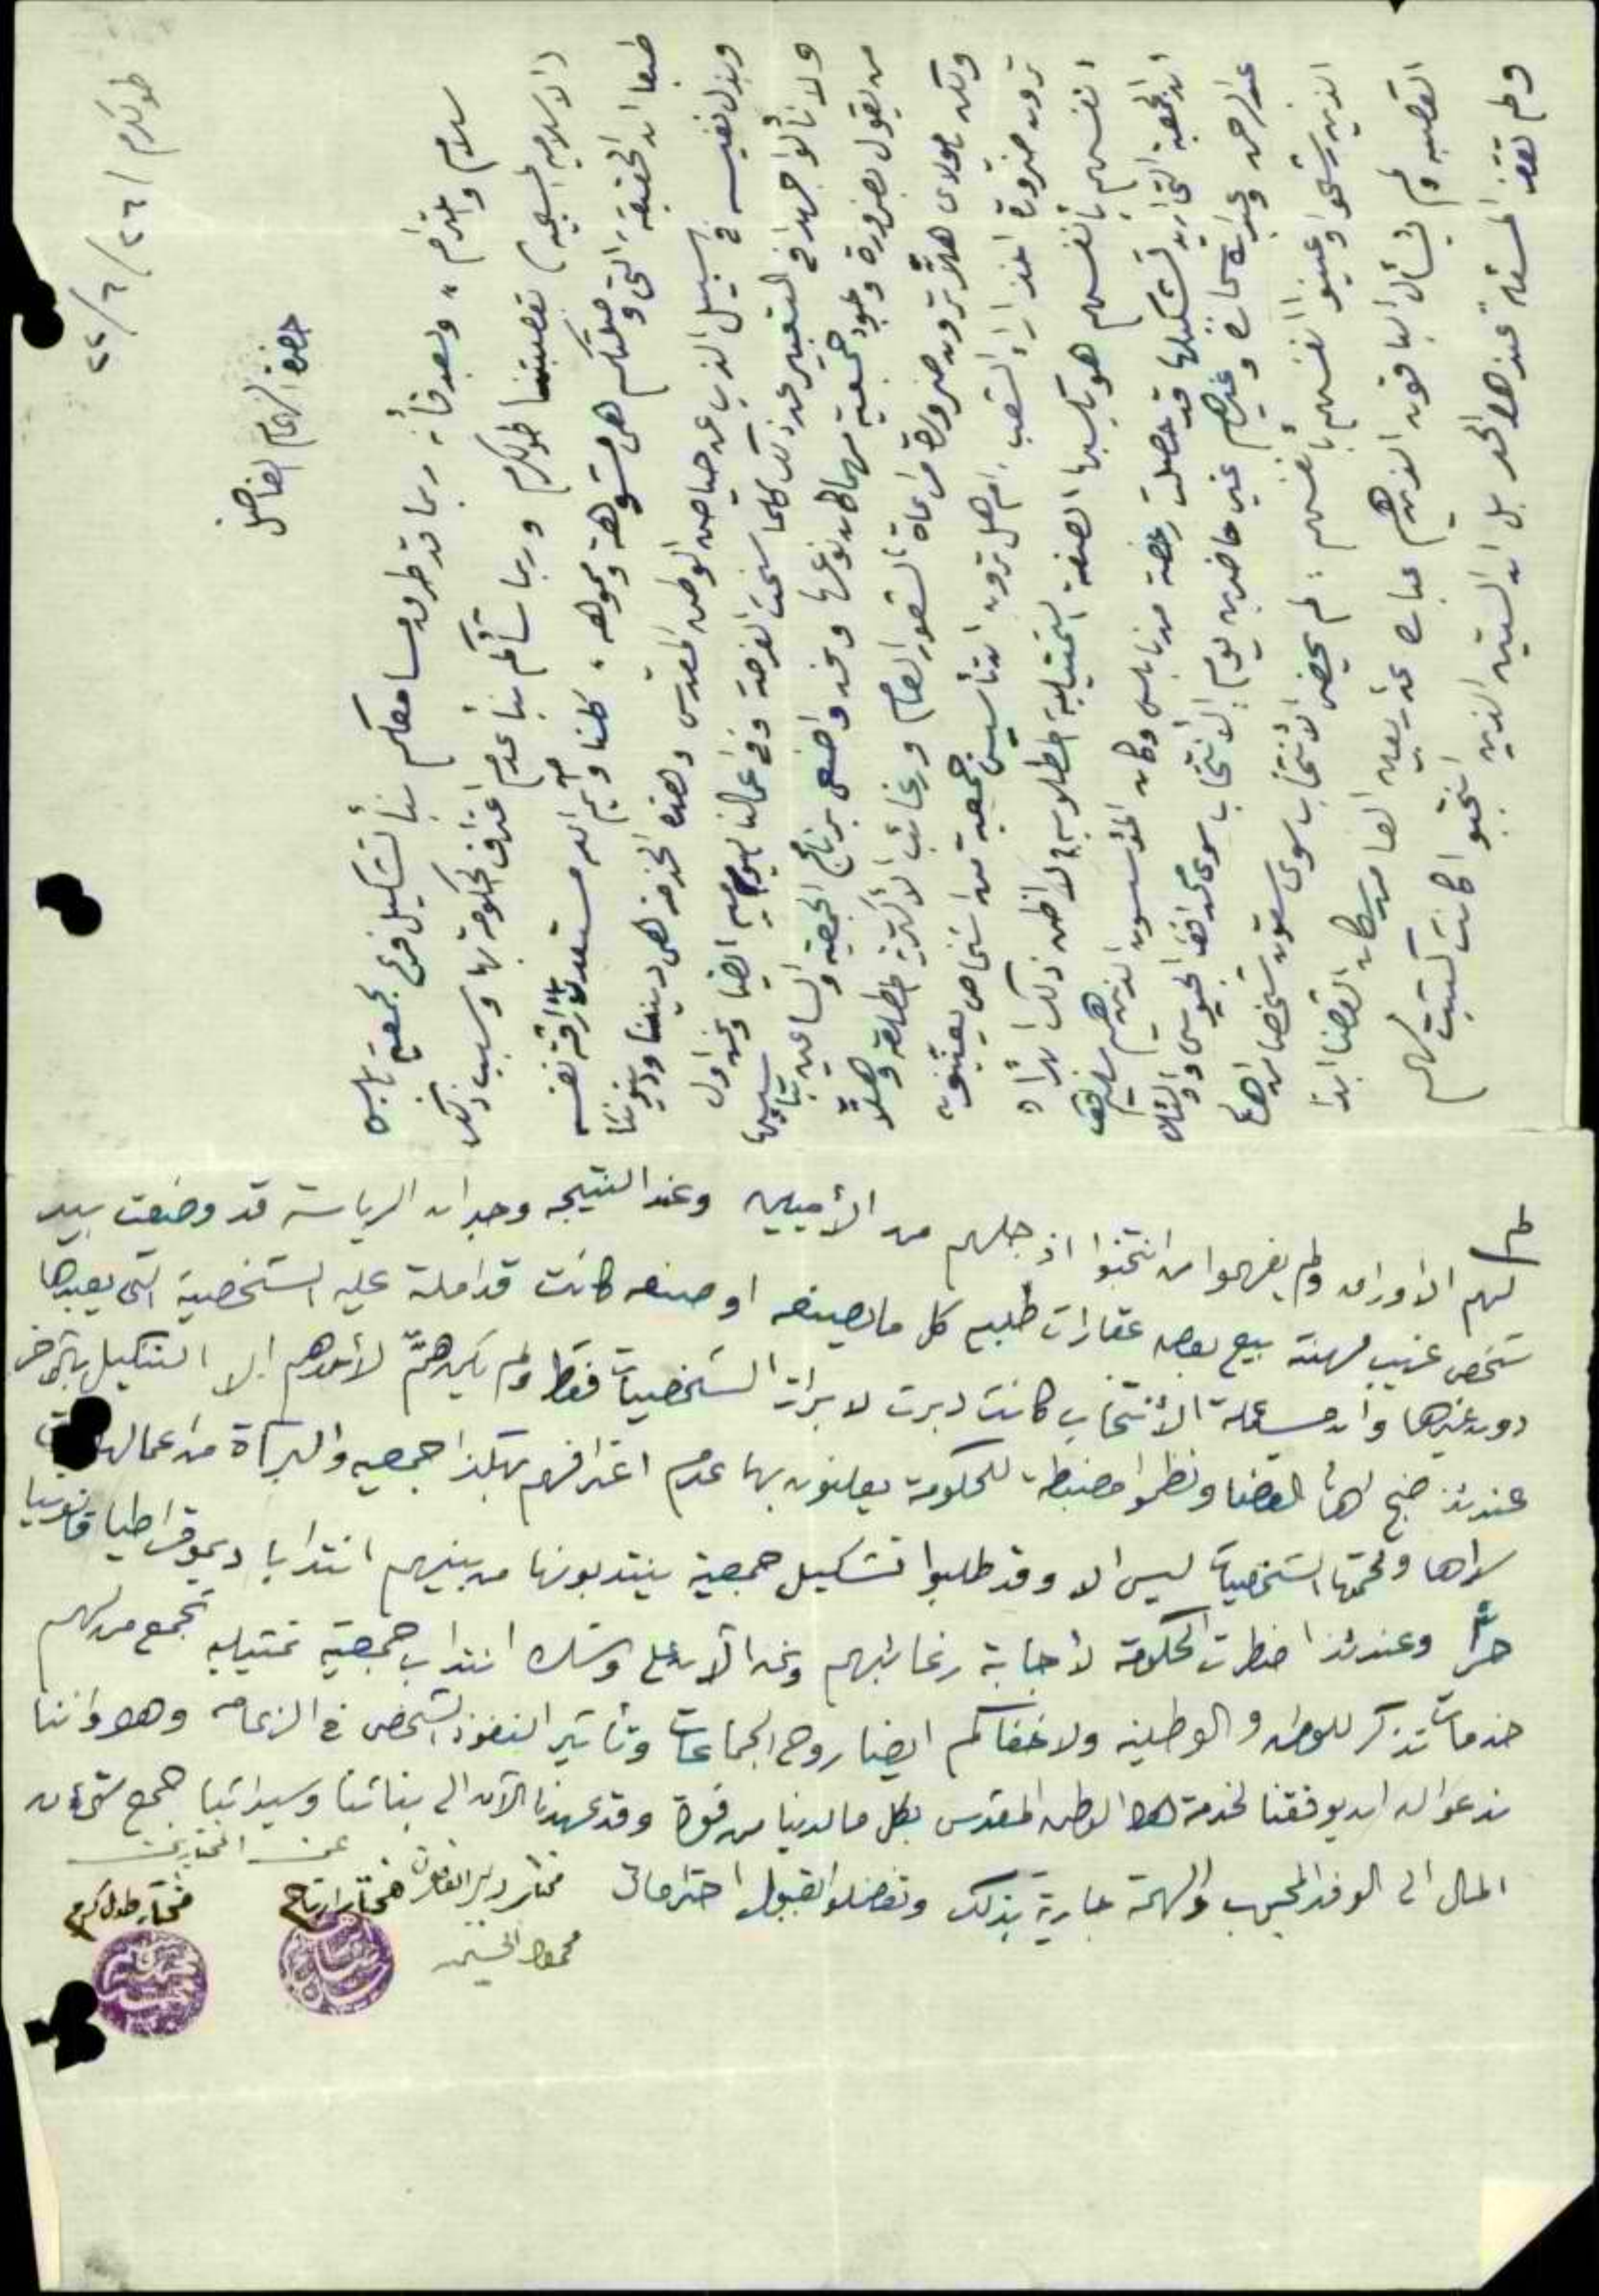 طولكرم / ٢٦ / ٦ / ٢٢
حضرة الهمام الفاضل
سلام واحترام ، وبعد فأنه ربما قد طرق مسامعكم نبأ تشكيل فرع لجمعية نابلس
(الاسلامية المسيحية) بقصبتنا طولكرم وربما سائكم نبأ عدم اعتراف الحكومة بها وسبب ذلك
طبعا ان الحقيقة التي وصلتكم هي مشوهة ومموهه ، كلنا وأيم الله مستعد لأراقة نفسه
وبذل نفيسه في سبيل الذب عن حياض الوطن المقدس وهذه الخدمة هي ديننا وديدننا
ولا نألوا جهدا في التعبير عن ذلك كلما سنحت الفرصة وفي اعمالنا اليومية ايضا ونحن اول
من يقول بضرورة وجود جمعية مهما كان نوعها ونحن واضعي برنامج الجمعية والساعين بتأسيسها
ولكن مولاي هلاّ ترون ضرورة مراعاة الشعور العام ورغائب الأكثرية المطلقة وهلاّ
ترون ضرورة اخذ اراء الشعب ، ام هل ترون ان تأسيس جمعية من اشخاص يعينون
انفسهم بأنفسهم هو يكسبها الصفة التمثيلية المطلوبه لا اظن ذلك ابدا ،
ان الجمعية التي اريد تشكيلها قد حصلت رخصة من نابلس وكان المؤسسون الذين هم سليم
عبد الرحمن وغيرهم غير حاضرين يوم الأنتخاب سوى
الذين رشحوا وعينوا انفسهم بأنفسهم : لم يحضر الأنتخاب سوى ستون شخصا من اهل
القصبه ولم يسأل الباقون الذين هم عبارة عن اربعين الفا من سكان القضا ابدا
ولم تقف المسئلة عند هذا الحد بل ان الستين الذين انتخبوا كانت كتبت لهم
لهم الاوراق ولم يفهموا من انتخبوا اذ جلهم من الأميين وعند النتيجه وجد ان الرياسة قد وضعت بيد
شخص غريب مهنته بيع بعض عقارات كل ما يصيغه او صنعه كانت قد املته عليه الشخصية التي يعبدها
دون غيرها وان مسئلة الأنتخاب كانت دبرت لابراز الشخصيات فقط ولم يكن همّ لأحدهم الا التنكيل بالآخر
عندئذ ضج اهل القضا ونظموا مضبطة للحكومة يعلنون بها عدم اعترافهم بهكذا جمعيه والبراءة من اعمالها
سداها ولحمتها الشخصيات ليس الا وقد طلبوا تشكيل جمعية ينتدبونها من بينهم انتدابا ديموقراطيا قانونيا
حراً وعندئذ اضطرت الحكومة لأجابة رغائبهم ونحن الآن على وشك انتداب جمعية تمثيليه تجمع من لهم
خدمات تذكر للوطن والوطنيه ولا خفاكم ايضا روح الجماعات وتأثير النفوذ الشخصي في الزعامه وهلا اننا
ندعوا الله ان يوفقنا لخدمة هذا الوطن المقدس بكل ما لدينا من قوة وقد عهدنا الآن الى بناتنا وسيداتنا جمع شيء من
المال الى الوفد المحبوب والهمة جارية بذلك وتفضلوا بقبول احتراماتي
مختار دير الغصون
محمود الحسين
مختار ارتاح
مختار طولكرم